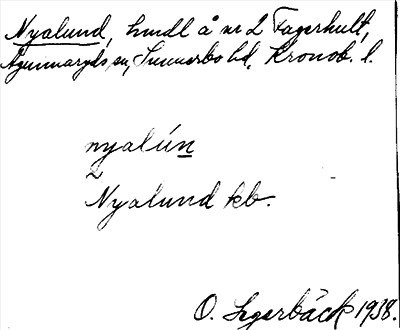 Nyalund, hmdl å nr 2 Fagerhult,
Agunnaryds sn, Sunnerbo hd, Kronob. l.
nyalún
2
Nyalund kb.
O. Segerbäck 1938.